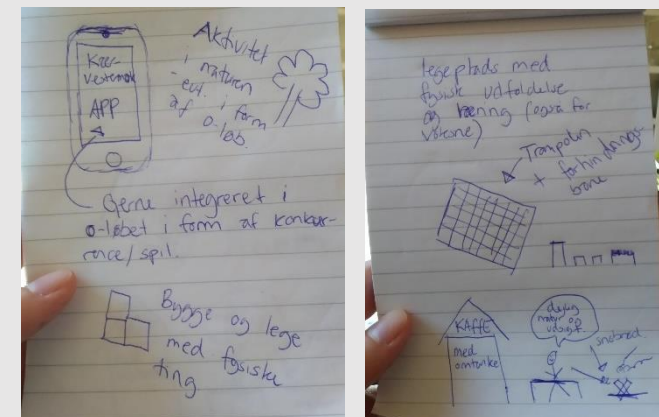 Aktivitet
i naturen
- evt. i form
af o-løb.
Kær-
vestermose
APP
Gerne integreret i
o-løbet i form af konkur-
rence/spil.
Bygge og lege
med fysiske
ting
legeplads med
fysisk udfoldelse
og læring (også for
voksne)
Trampolin
+ forhindrings-
bane
KAFFE
med
omtanke
dejlig
natur og
udsigt
snobrød